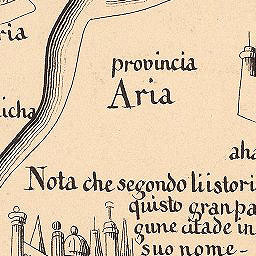 ria
provincia
Aria
icha
aha
Nota che segondo li istori
quisto gran pa
gune citade in
suo nome-